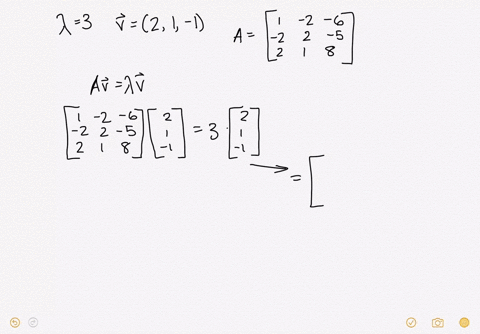 λ=3 v⃗=(2,1,-1) A= [1 -2 -6
-2 2 -5
2 1 8]
Av⃗=λv⃗
[1 -2 -6
-2 2 -5
2 1 8] [2
1
-1] = 3 · [2
1
-1]
→ = [